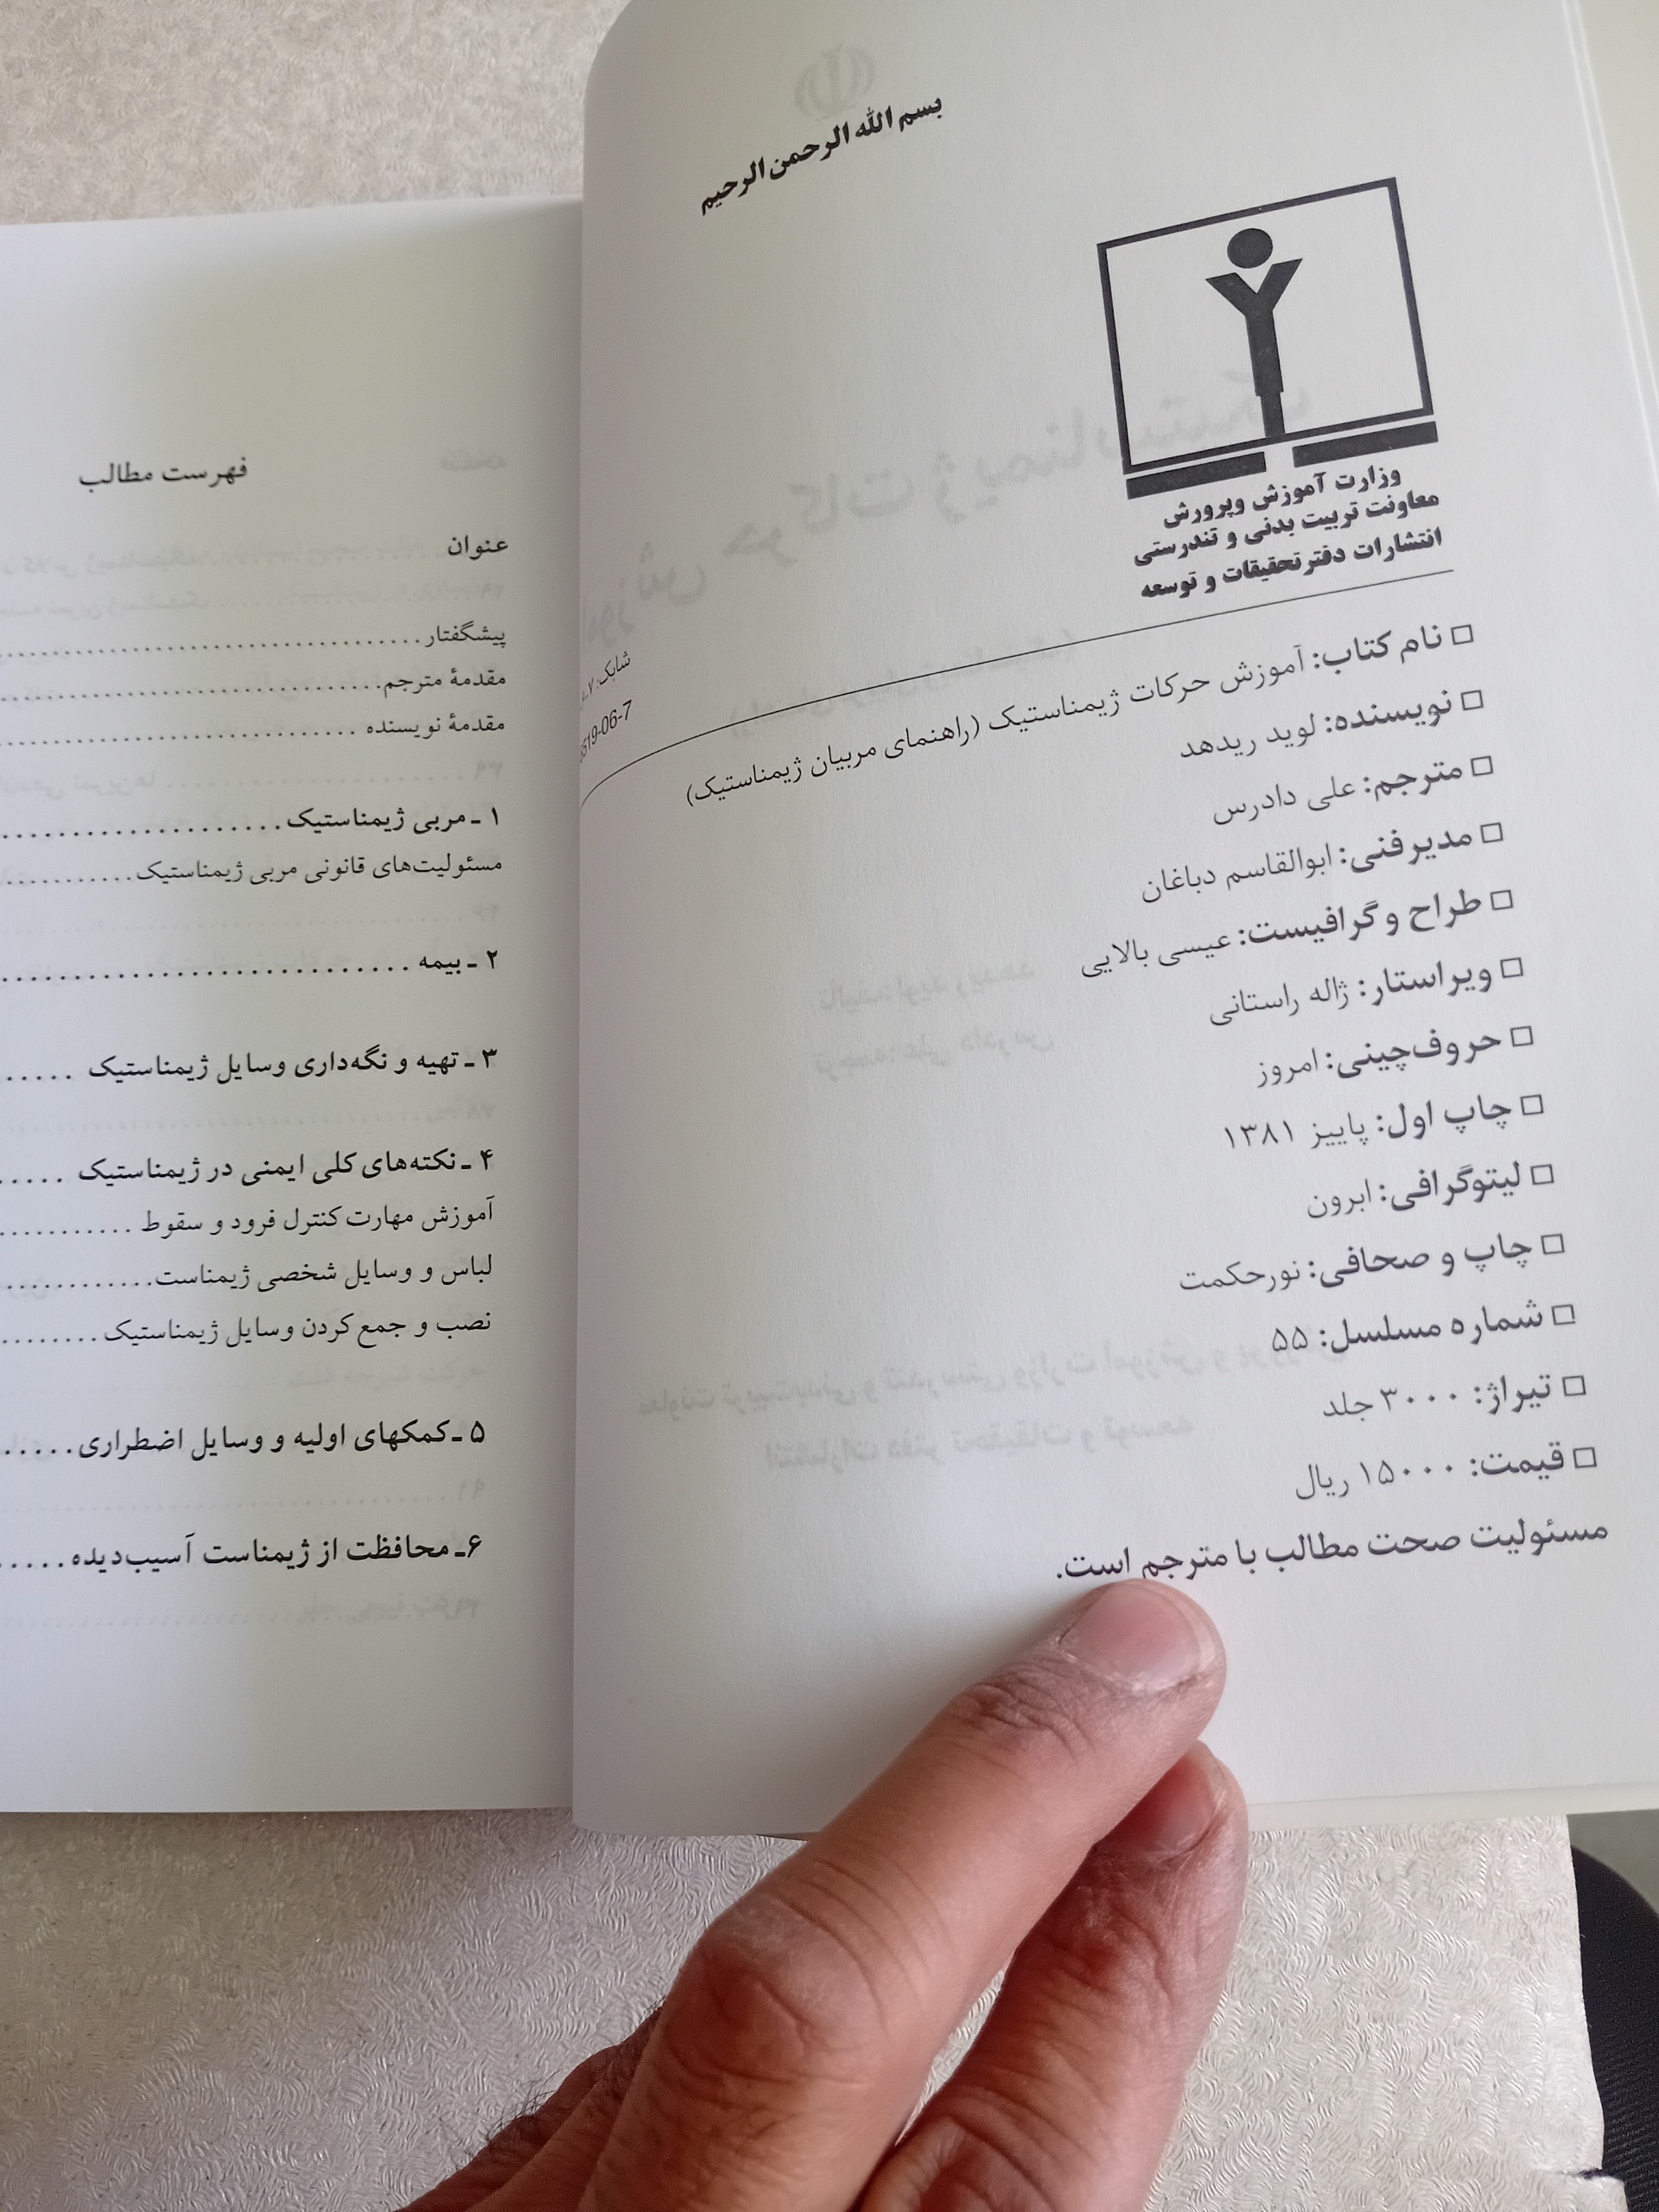 بسم الله الرحمن الرحیم
وزارت آموزش وپرورش
معاونت تربیت بدنی و تندرستی
انتشارات دفتر تحقیقات و توسعه
شابک:
□ نام کتاب: آموزش حرکات ژیمناستیک (راهنمای مربیان ژیمناستیک)
□ نویسنده: لوید ریدهد
□ مترجم: علی دادرس
□ مدیرفنی: ابوالقاسم دباغان
□ طراح و گرافیست: عیسی بالایی
□ ویراستار: ژاله راستانی
□ حروف‌چینی: امروز
□ چاپ اول: پاییز ۱۳۸۱
□ لیتوگرافی: ابرون
□ چاپ و صحافی: نورحکمت
□ شماره مسلسل: ۵۵
□ تیراژ: ۳۰۰۰ جلد
□ قیمت: ۱۵۰۰۰ ریال
مسئولیت صحت مطالب با مترجم است.
فهرست مطالب
عنوان
پیشگفتار
مقدمهٔ مترجم
مقدمهٔ نویسنده
۱ ـ مربی ژیمناستیک
مسئولیت‌های قانونی مربی ژیمناستیک
۲ ـ بیمه
۳ ـ تهیه و نگه‌داری وسایل ژیمناستیک
۴ ـ نکته‌های کلی ایمنی در ژیمناستیک
آموزش مهارت کنترل فرود و سقوط
لباس و وسایل شخصی ژیمناست
نصب و جمع کردن وسایل ژیمناستیک
۵ ـ کمکهای اولیه و وسایل اضطراری
۶ـ محافظت از ژیمناست آسیب‌دیده